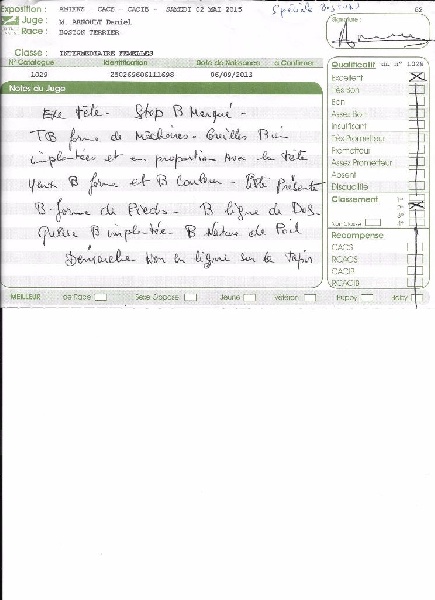 Exposition : AMIENS CACS - CACIB - SAMEDI 02 MAI 2015
Spéciale Bostons
62
Juge : M. ARNOULT Daniel
Signature :
Race : BOSTON TERRIER
Classe : INTERMEDIAIRE FEMELLES
N° Catalogue Identification Date de Naissance a Confirmer
1029 250269606111698 06/09/2013
Notes du Juge
Exe tête - Stop B Marqué -
TB forme de Machoires - Oreilles Bien
implantées et en proportion avec la tête
yeux B forme et B Couleur - Présente
B. forme de Pieds - B ligne de Dos.
Queue B implantée - B Nature de Poil
Démarche en ligne sur le tapis
Qualificatif du n° 1029
Excellent
Très Bon
Bon
Assez Bon
Insuffisant
Très Prometteur
Prometteur
Assez Prometteur
Absent
Disqualifié
Classement
1 2 3 4
Non Classé
Récompense
CACS
RCACS
CACIB
RCACIB
MEILLEUR : de Race Sexe Opposé Jeune Vétéran Puppy Baby